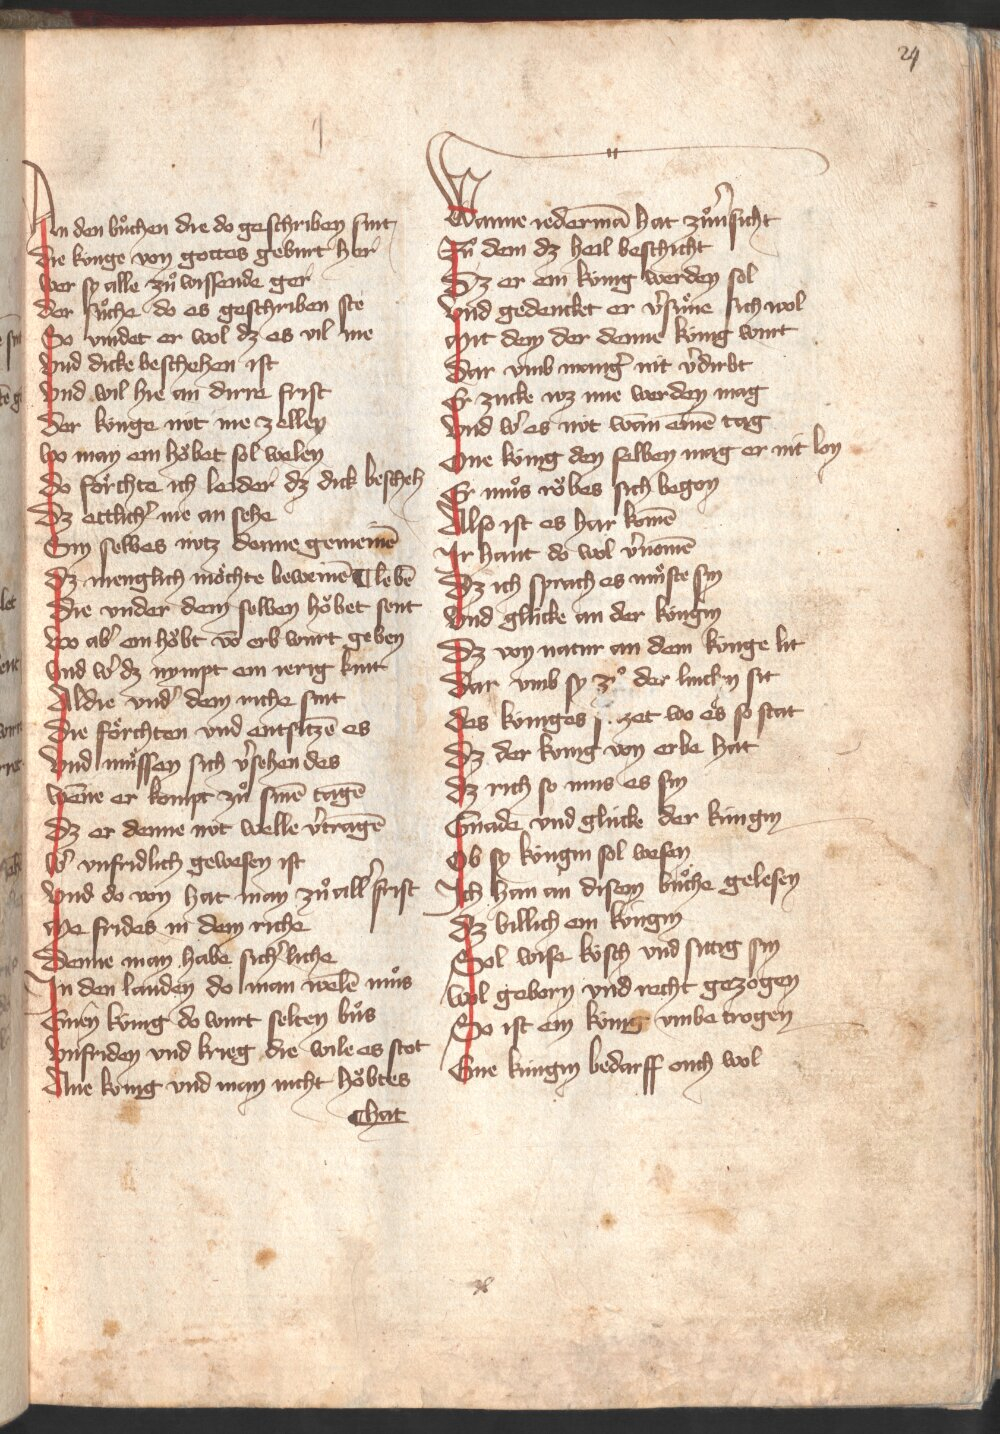 24
An den buͦchen die do geschriben sint
Die kúnge von gottes geburt her
Wer sy alle zuͦ wissende ger
Der suͦche do es geschriben ste
So vindet er wol dz es vil me
Vnd dicke beschehen ist
Vnd wil hie an dirre frist
Der kúnge nút me zellen
Wo man ein hoͤbet sol welen
Do foͤrchte ich leider dz dick bescheh
Dz ettlich' me an sehe
Sin selbes nutz denne gemeinē
Dz menglich moͤchte beweinē ¶ lebē
Die vnder dem selben hoͤbet sent
Wo ab' ein hoͤbt vō erb wurt geben
Vnd w' dz nympt ein ierig kint
Al die vnd' dem riche sint
Die foͤrchten vnd entsitzē es
Vnd muͤssen sich v'sehen des
Wēne er kompt zuͦ sinē tagē
Dz er denne nút welle v'tragē
W' vnfridlich gewesen ist
Vnd do von hat man zuͦ all' frist
Me frides in dem riche
Denne man habe sich'liche
In den landen do man welē muͦs
Einen kúnig do wurt selten buͦs
Vnfriden vnd krieg die wile es stot
Ane kúnig vnd man nicht hoͤbtes
¶ hat
Wanne iedermā hat zuͦu'sicht
Zuͦ dem dz heil beschicht
Dz er ein kúnig werden sol
Vnd gedencket er v'suͤne sich wol
Mit dem der denne kúnig wurt
Dar vmb mang' nit v'dirbt
Er zucke wz ime werden mag
Vnd w' es nút wan einē tag
One kúnig den selben mag er nit lon
Er muͦs roͤbes sich begon
Also ist es har komē
Ir hant do wol v'nomē
Dz ich sprach es muͤste sin
Vnd glúcke an der kúngin
Dz von natur an dem kúnge lit
Dar vmb sy zͦ der lincken sit
Des kúniges j. zet wo es so stat
Dz der kúnig von erbe hat
Dz rich so mus es sin
Gnade vnd glúcke der kúngin
Ob sy kúngin sol wesen
Ich han an disem buͦche gelesen
Dz billich ein kúngin
Sol wise kúsch vnd sittig sin
Wol geborn vnd recht gezogen
So ist ein kúnig vmbe trogen
Eine kúngin bedarff ouch wol